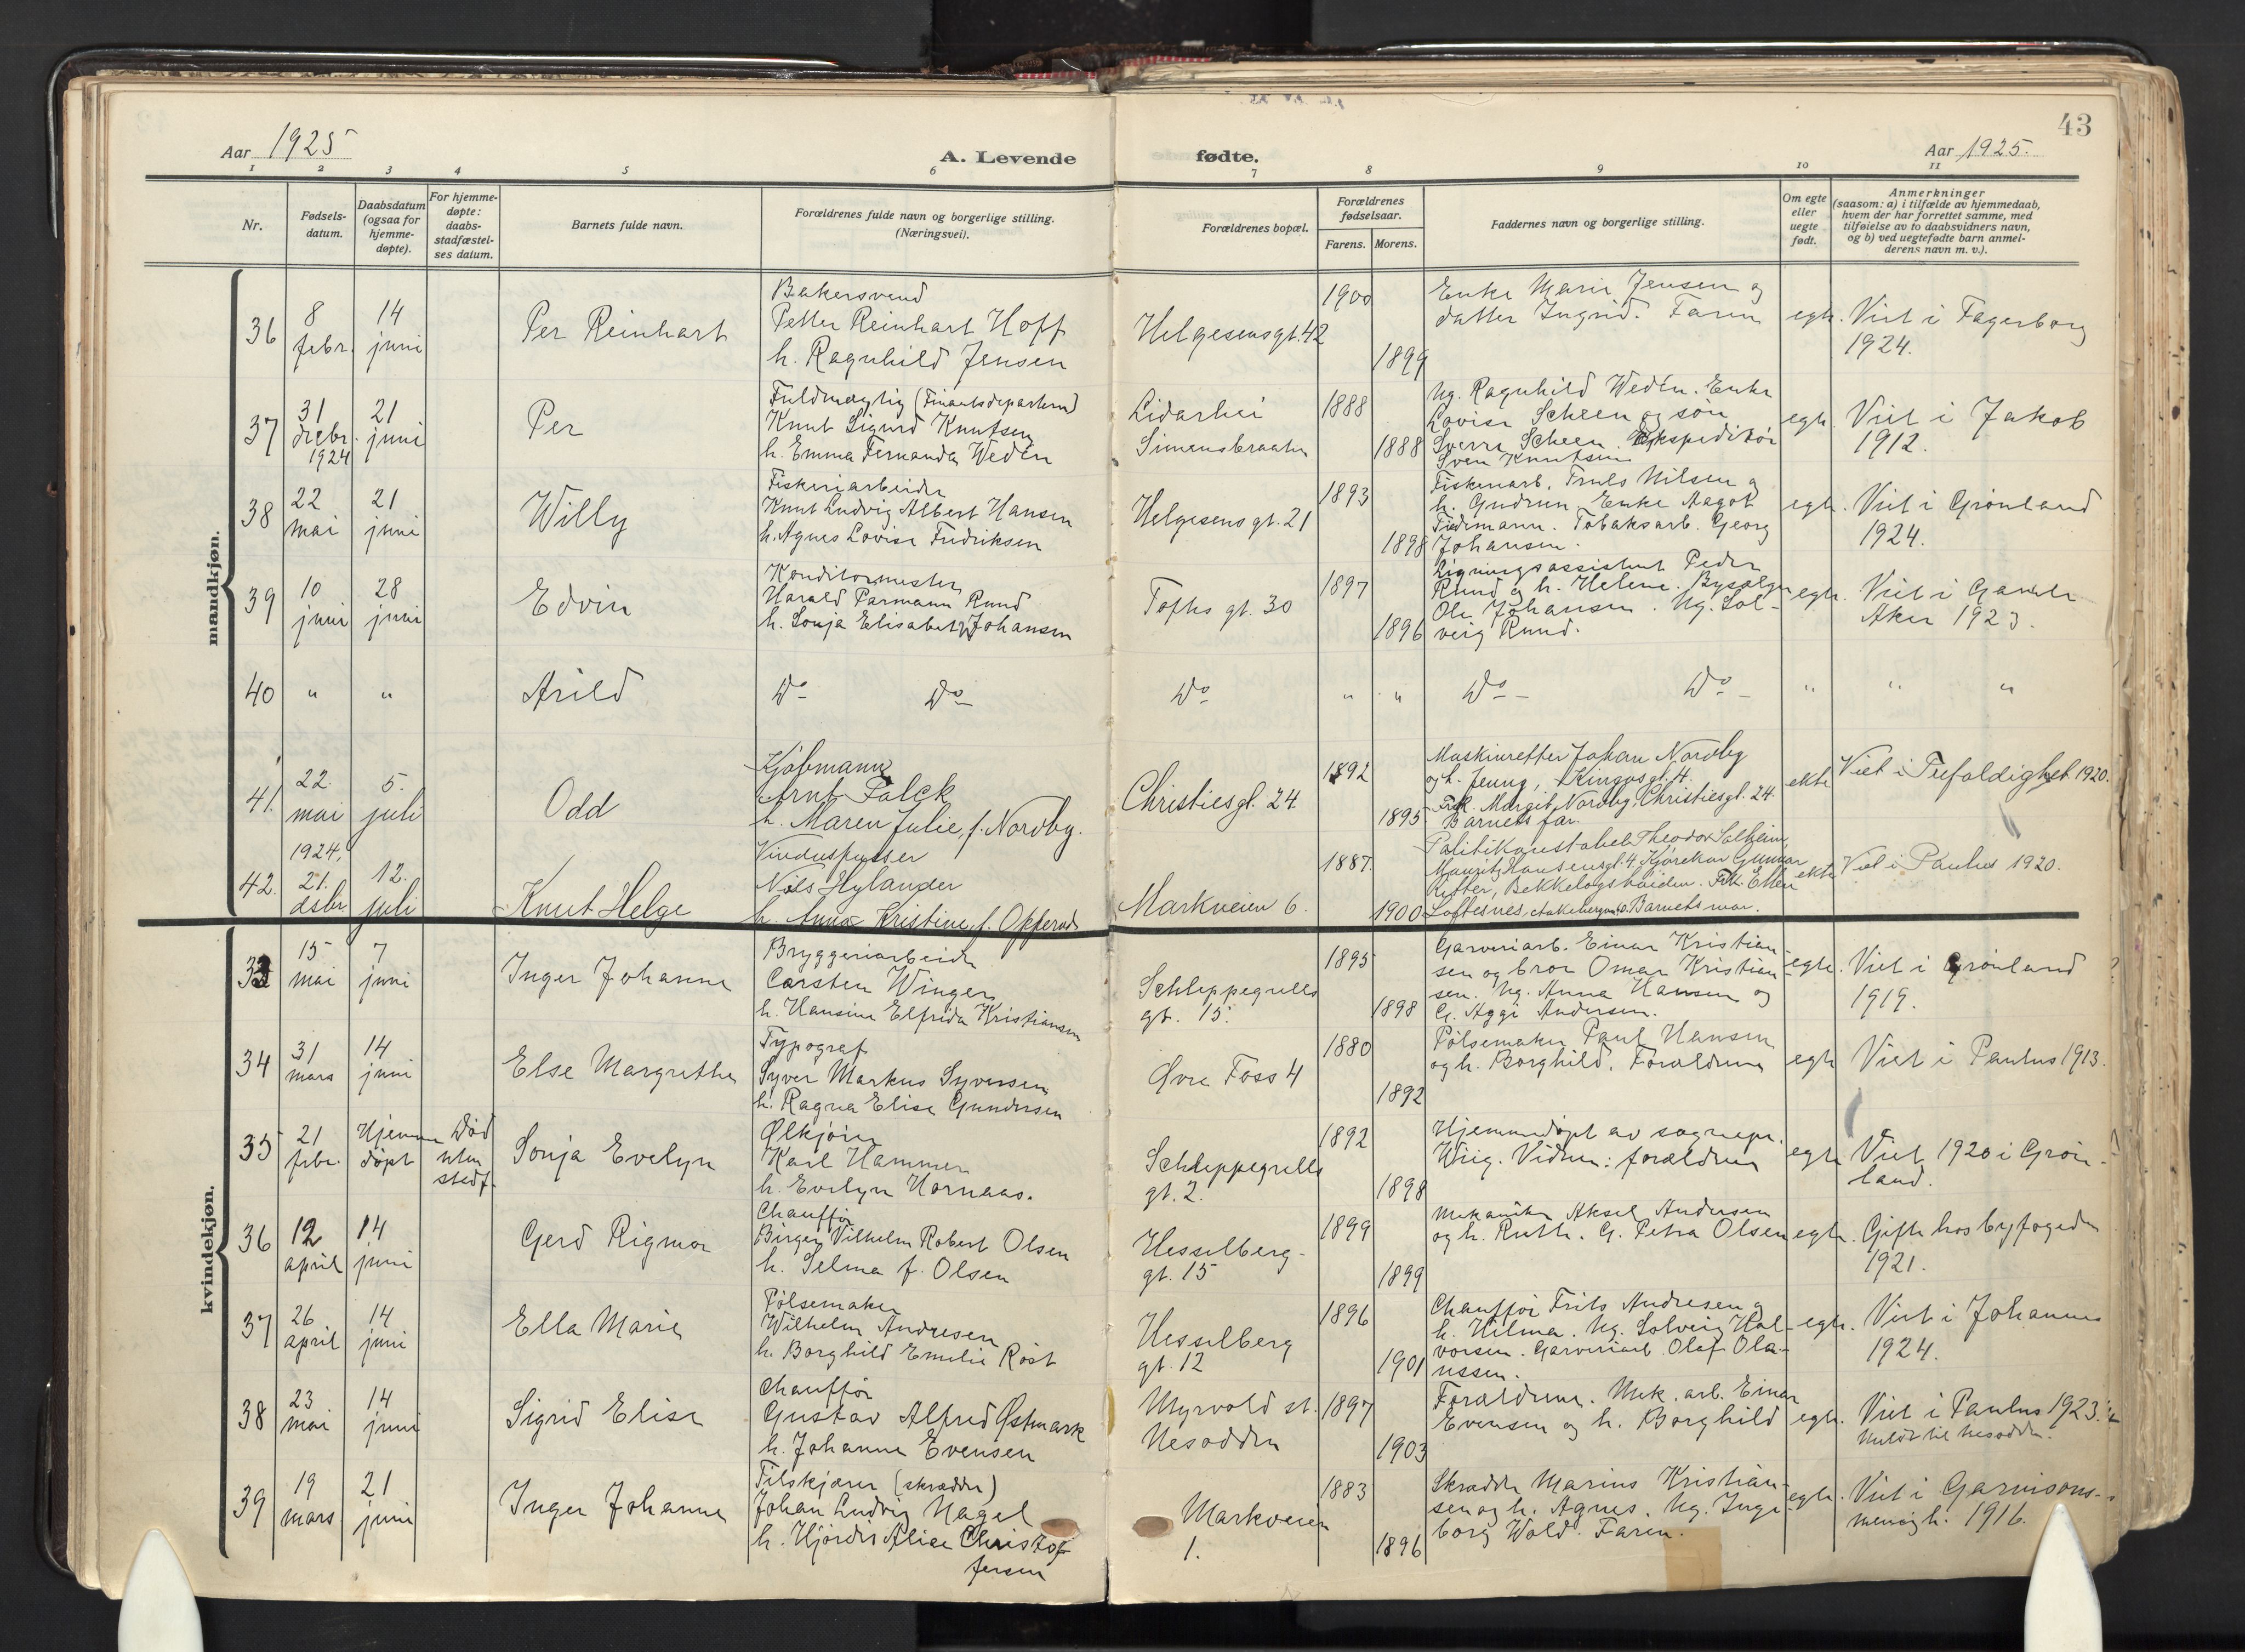 43
Aar 1925
A. Levende
fødte.
Aar 1925.
1 2 3 4 5 6 7 8 9 10 11
Nr.
Fødsels-
datum.
Daabsdatum
(ogsaa for
hjemme-
døpte).
For hjemme-
døpte:
daabs-
stadfæstel-
ses datum.
Barnets fulde navn.
Forældrenes fulde navn og borgerlige stilling.
(Næringsvei).
Forældrenes bopæl.
Forældrenes
fødselsaar.
Farens. Morens.
Faddernes navn og borgerlige stilling.
Om egte
eller
uegte
født.
Anmerkninger
(saasom: a) i tilfælde av hjemmedaab,
hvem der har forrettet samme, med
tilføielse av to daabsvidners navn,
og b) ved uegtefødte barn anmel-
derens navn m. v.).
mandkjøn.
36
8
febr.
14
juni
Per Reinhart
Bakersvend
Petter Reinhart Hoff
h. Ragnhild Jensen
Helgesensgt. 42
1900
1899
Enke Marie Jensen og
datter Ingrid. Faren
egte.
Viet i Fagerborg
1924.
37
31
decbr.
1924
21
juni
Per
Fuldmægtig (Finansdepartem)
Knut Sigurd Knutsen
h. Emma Fernanda Wedén
Lidarhei
Simensbraaten
1888
1888
Ug. Ragnhild Wedén. Enke
Lovise Scheen og søn
Sverre Scheen. Ekspeditør
Sven Knutsen
egte.
Viet i Jakob
1912.
38
22
mai
21
juni
Willy
Fiskeriarbeider
Knut Ludvig Albert Hansen
h. Agnes Lovise Fredriksen
Helgesens gt. 21
1893
1898
Fiskeriarb. Truls Nilsen og
h. Gudrun. Enke Aagot
Tidemann. Tobaksarb. Georg
Johansen.
egte.
Viet i Grønland
1924.
39
10
juni
28
juni
Edvin
Konditormester
Harald Parmann Rund
h. Sonja Elisabeth Johansen
Toftes gt. 30
1897
1896
Ligningsassistent Peder
Rund og h. Helene. Bysælger
Ole Johansen. Ug. Sol-
veig Rund.
egte.
Viet i Gamle
Aker 1923.
40 " "
Arild
Do Do
Do
" "
Do Do
" " "
41.
22.
mai
5.
juli
Odd
Kjøbmann
Arnt Falck
h. Maren Julie, f. Nordby.
Christiesgt. 24.
1892
1895
Maskinretter Johan Nordby
og h. Jenny, Kingosgt. 4.
Frk. Margit Nordby, Christiesgt. 24.
Barnets far.
ekte
Viet i Trefoldighet 1920.
42.
1924,
21.
dsbr
12.
juli
Knut Helge
Vinduspusser
Nils Hylander
h. Anna Kristine, f. Opperud
Markveien 6.
1887.
1900
Politikonstabel Theodor Solheim,
Mauritz Hansensgt. 4. Kjørekar Gunnar
Bekkelagshøiden. Frk. Ellen
Loftesnes, Barnets mor.
ekte
Viet i Paulus 1920.
kvindekjøn.
33
15
mai
7
juni
Inger Johanne
Bryggeriarbeider
Carsten Winger
h. Hansine Elfrida Kristiansen
Schleppegrells
gt. 15.
1895
1898
Garveriarb. Einar Kristian-
sen og bror Omar Kristian-
sen. Ug. Anna Hansen og
G. Aggi Andersen.
egte.
Viet i Grønland
1919.
34
31
mars
14
juni
Else Margrethe
Typograf
Syver Markus Syversen
h. Ragna Elise Gundersen
Øvre Foss 4
1880
1892
Pølsemaker Paul Hansen
og h. Borghild. Forældrene
egte
Viet i Paulus 1913.
35
21
febr.
Hjemme
døpt
Død
uten
stadf.
Sonja Evelyn
Ølkjører
Karl Hammer
h. Evelyn Hornaas.
Schleppegrells
gt. 2.
1892
1898
Hjemmedøpt av sognepr.
Wiig. Vidner: forældrene
egte
Viet 1920 i Grøn-
land.
36
12
april
14
juni
Gerd Rigmor
Chauffør
Birger Vilhelm Robert Olsen
h. Selma f. Olsen
Hesselberg-
gt. 15
1899
1899
Mekaniker Aksel Andersen
og h. Ruth. G. Petra Olsen
egte.
Gifte hos byfogden
1921.
37
26
april
14
juni
Ella Marie
Pølsemaker
Wilhelm Andresen
h. Borghild Emelie Røst
Hesselberg
gt. 12
1896
1901
Chauffør Frits Andresen og
h. Hilma. Ug. Solveig Hal-
vorsen. Garveriarb. Olaf Ola-
ussen.
egte.
Viet i Johannes
1924.
38
23
mai
14
juni
Sigrid Elise
Chauffør
Gustav Alfred Østmark
h. Johanne Evensen
Myrvold st.
Nesodden
1897
1903
Forældrene. Mek. arb. Einar
Evensen og h. Borghild
egte.
Viet i Paulus 1923.
Meldt til Nesodden.
39
19
mars
21
juni
Inger Johanne
Tilskjærer (skrædder)
Johan Ludvig Nagel
h. Hjördis Alice Christof
fersen
Markveien
1.
1883
1896
Skrædder Marius Kristian-
sen og h. Agnes. Ug. Inge-
borg Wold. Faren.
egte.
Viet i Garnisons-
menigh. 1916.